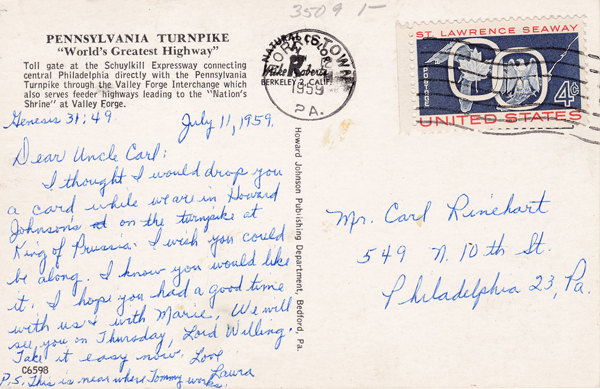 3509 1-
PENNSYLVANIA TURNPIKE
"World's Greatest Highway"
Toll gate at the Schuylkill Expressway connecting
central Philadelphia directly with the Pennsylvania
Turnpike through the Valley Forge Interchange which
also serves feeder highways leading to the "Nation's
Shrine" at Valley Forge.
NATURAL COLOR
Mike Roberts
BERKELEY 2, CALIF.
1959
PA.
ST. LAWRENCE SEAWAY
POSTAGE
4¢
UNITED STATES
Genesis 31:49
July 11, 1959.
Dear Uncle Carl:
I thought I would drop you
a card while we are in Howard
Johnson's at on the turnpike at
King of Prussia. I wish you could
be along. I know you would like
it. I hope you had a good time
with us & with Marie. We will
see you on Thursday, Lord Willing.
Take it easy now. Love
Laura
P.S. This is near where Tommy works.
C6598
Howard Johnson Publishing Department, Bedford, Pa.
Mr. Carl Rinehart
549 N. 10th St.
Philadelphia 23, Pa.